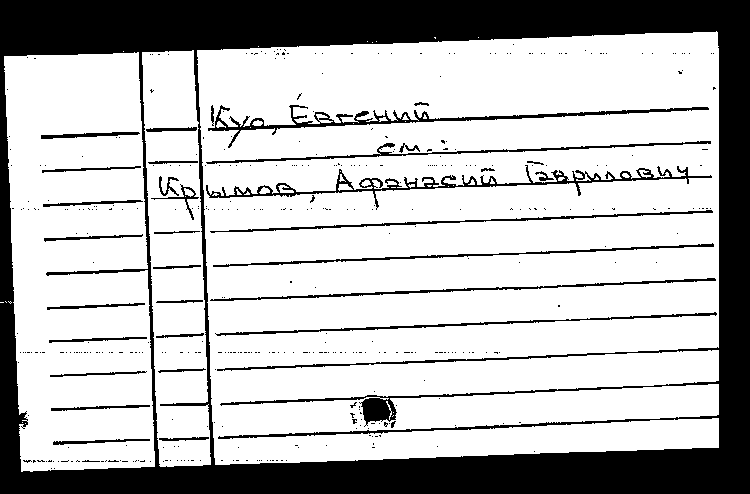 Куо, Евгений
см.:
Крымов, Афанасий Гаврилович